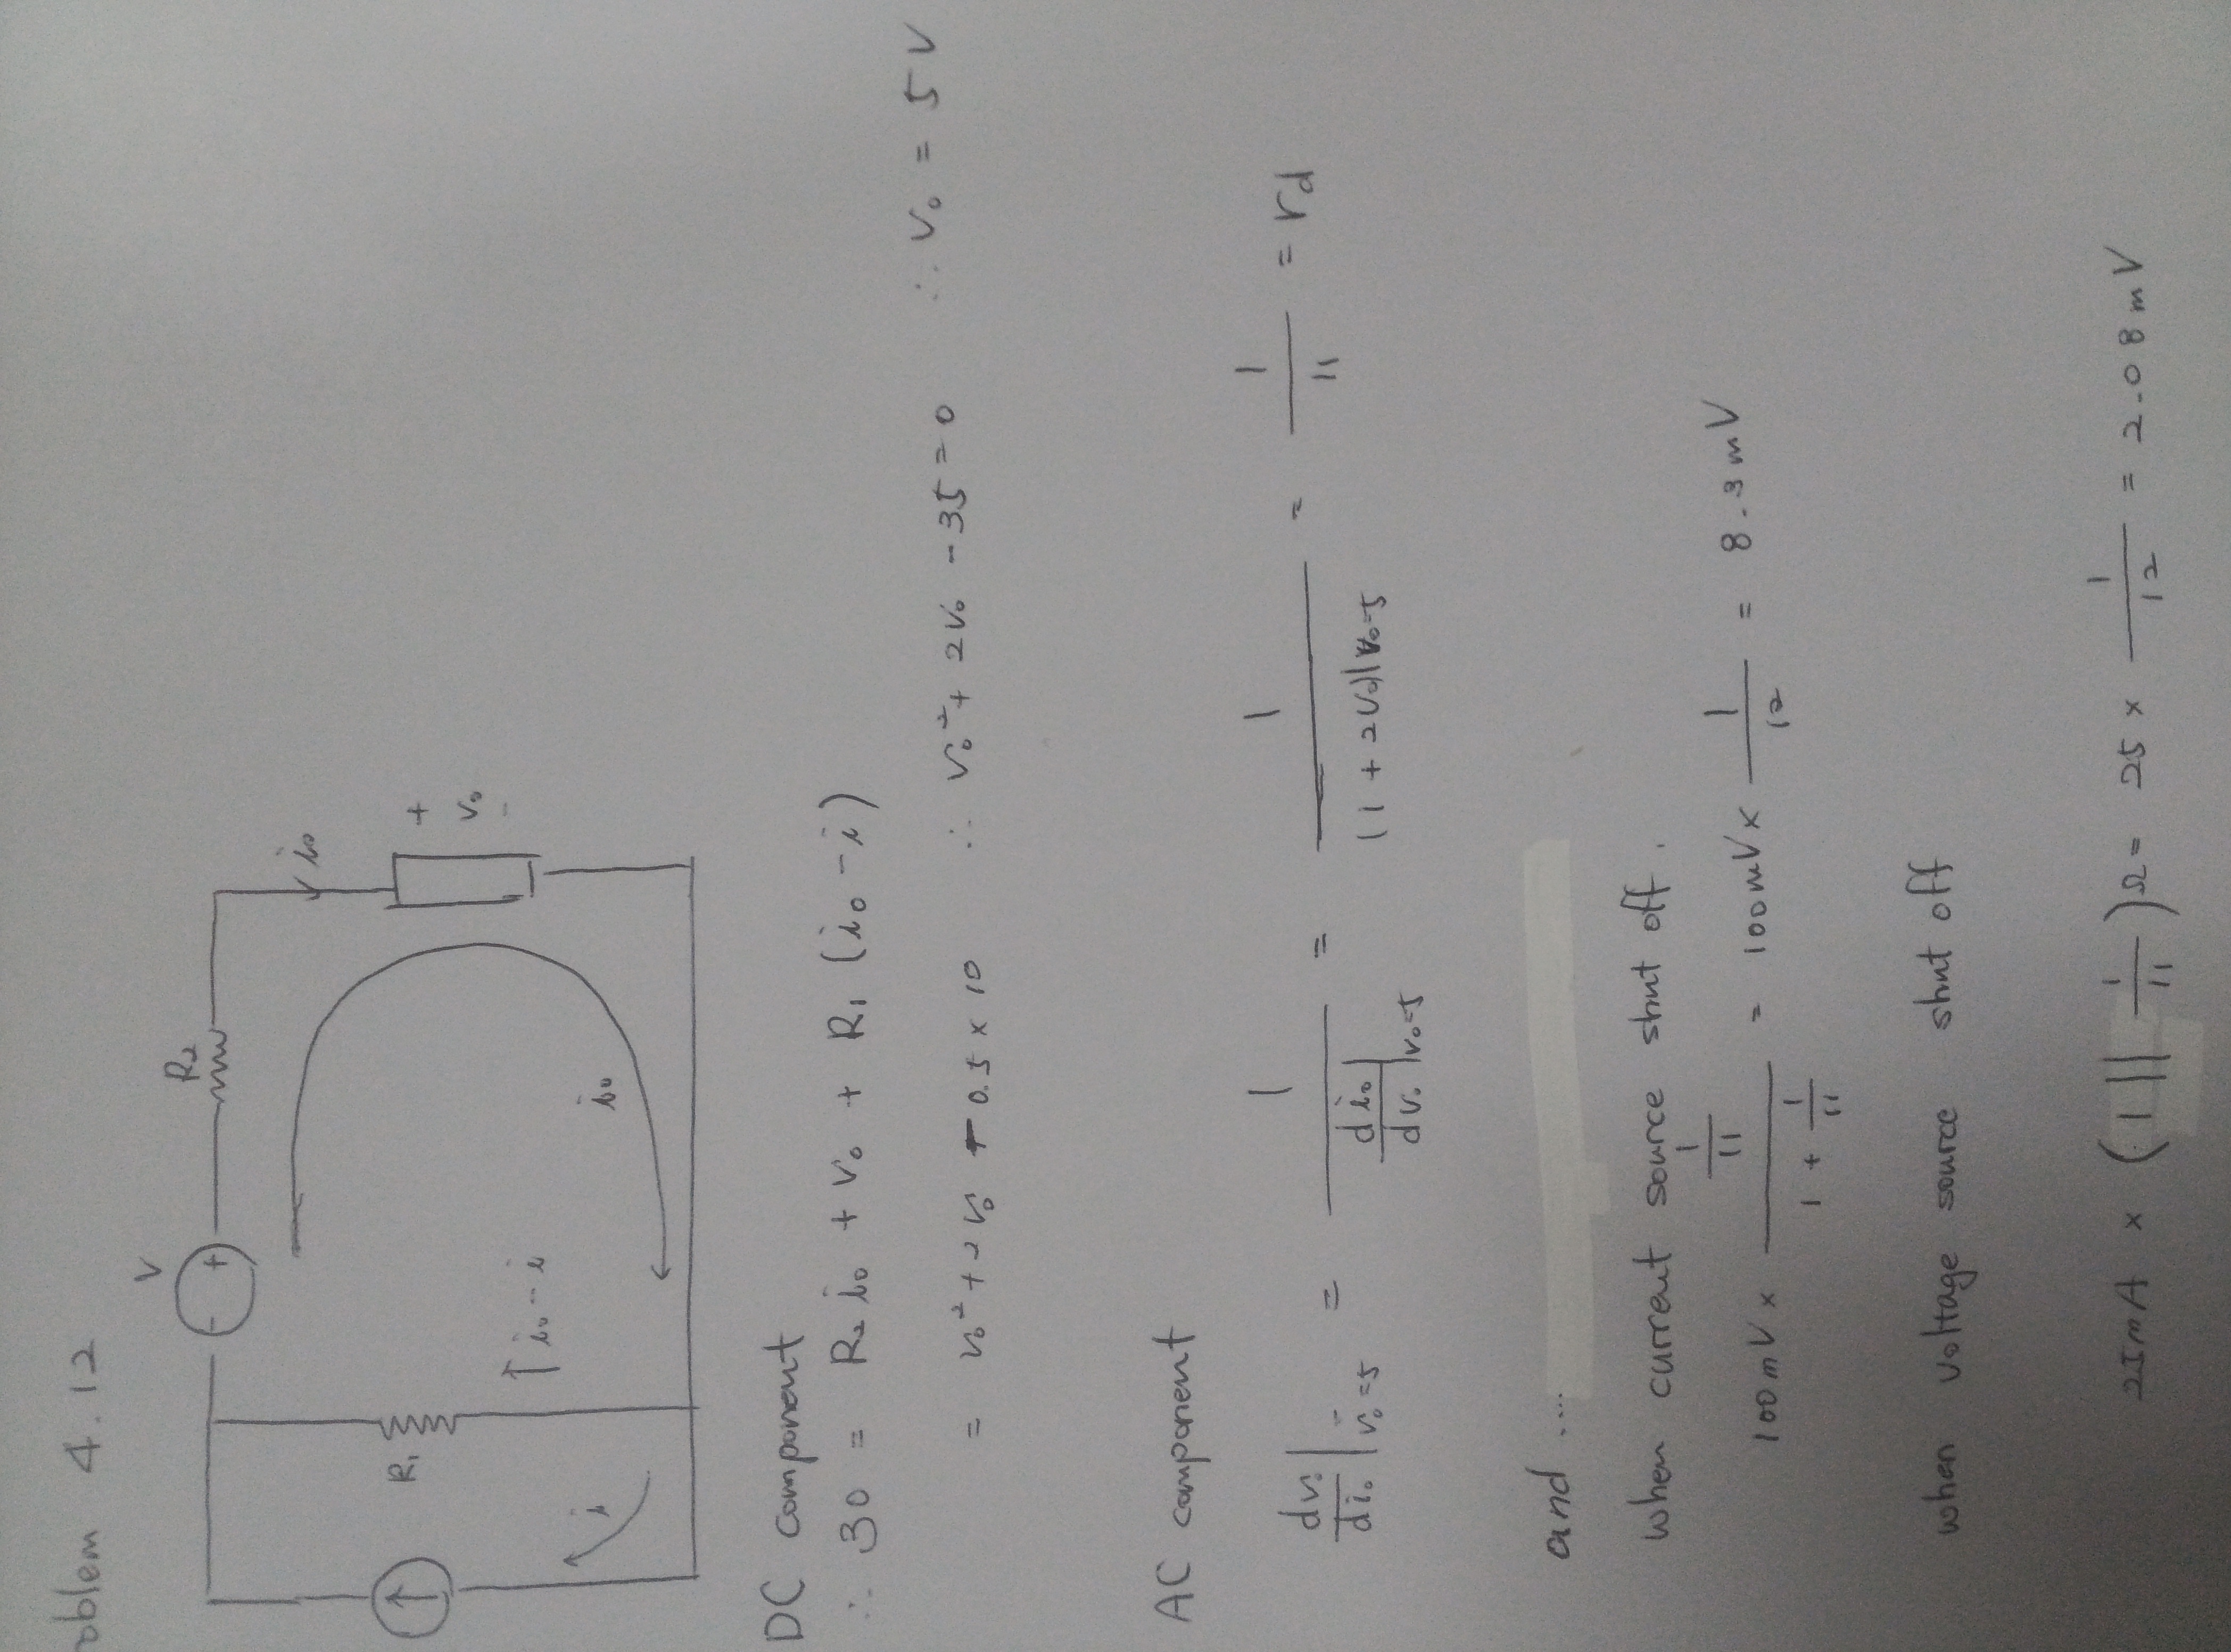 oblem 4.12
V
R₂
- +
i₀
+
v₀
-
R₁
↑ i₀ - i
i₀
i
DC component
∴ 30 = R₂ i₀ + v₀ + R₁ (i₀ - i)
= v₀² + 2v₀ + 0.5 × 10 ∴ v₀² + 2v₀ - 35 = 0 ∴ v₀ = 5 V
AC component
dv₀/di₀ |v₀=5 = 1/(di₀/dv₀ |v₀=5) = 1/((1 + 2v₀)|v₀=5) = 1/11 = rd
and ....
when current source shut off.
100mV × (1/11)/(1 + 1/11) = 100mV × 1/12 = 8.3mV
when voltage source shut off
25mA × (1 || 1/11)Ω = 25 × 1/12 = 2.08mV